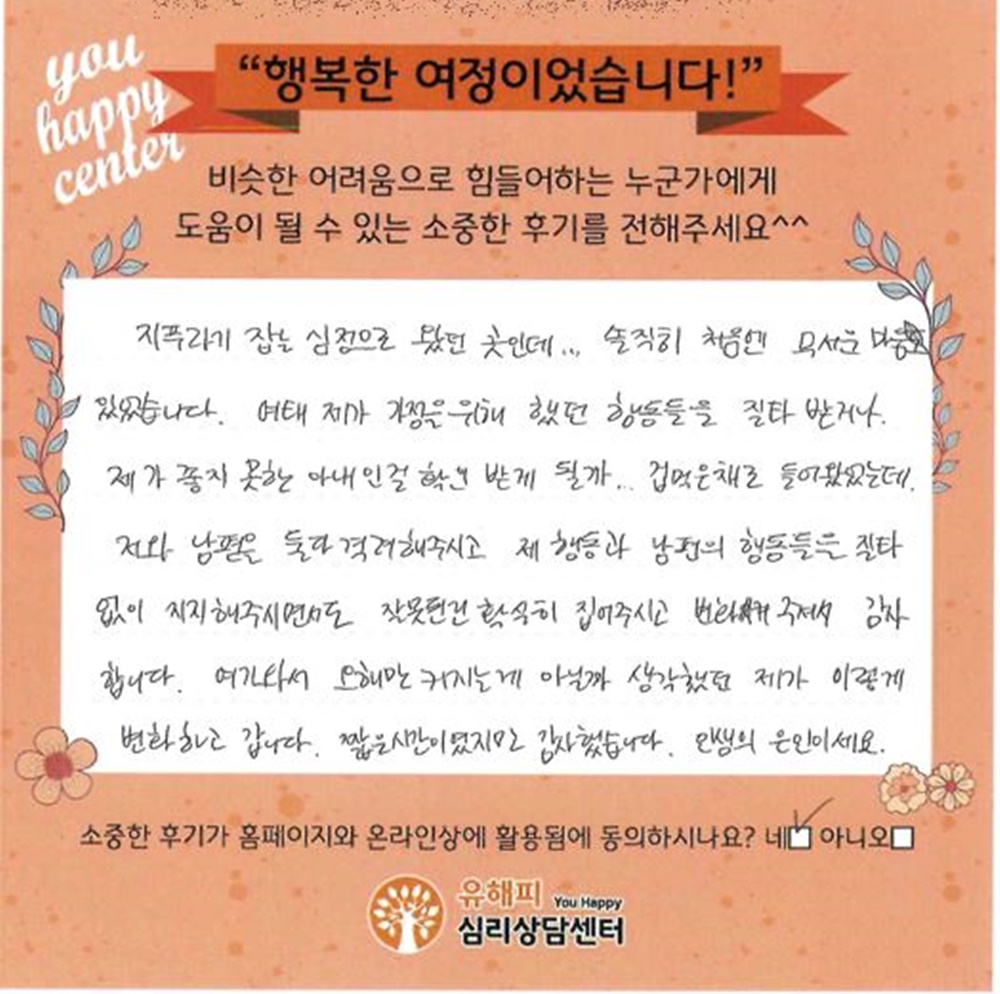 you
happy
center
“행복한 여정이었습니다!”
비슷한 어려움으로 힘들어하는 누군가에게
도움이 될 수 있는 소중한 후기를 전해주세요^^
지푸라기 잡는 심정으로 왔던 곳인데... 솔직히 처음엔 무서운 마음도
있었습니다. 여태 제가 가정을 위해 했던 행동들을 질타 받거나.
제가 좋지 못한 아내인걸 확인 받게 될까... 겁먹은채로 들어왔었는데.
저와 남편을 둘다 격려해주시고 제 행동과 남편의 행동들을 질타
없이 지지해주시면서도 잘못된건 확실히 집어주시고 변화시켜 주셔서 감사
합니다. 여기와서 오해만 커지는게 아닐까 생각했던 제가 이렇게
변화하고 갑니다. 짧은시간이였지만 감사했습니다. 인생의 은인이세요.
소중한 후기가 홈페이지와 온라인상에 활용됨에 동의하시나요? 네 아니오
유해피 You Happy
심리상담센터